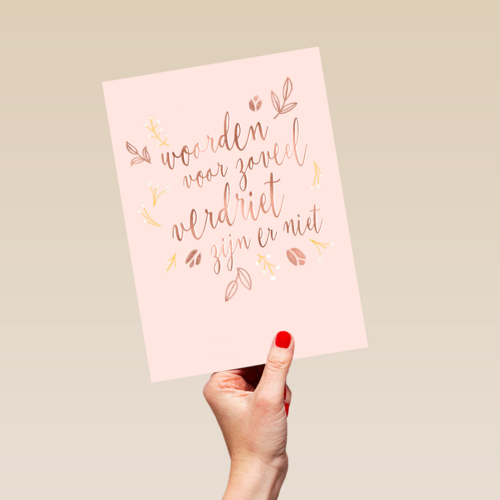 woorden
voor zoveel
verdriet
zijn er niet